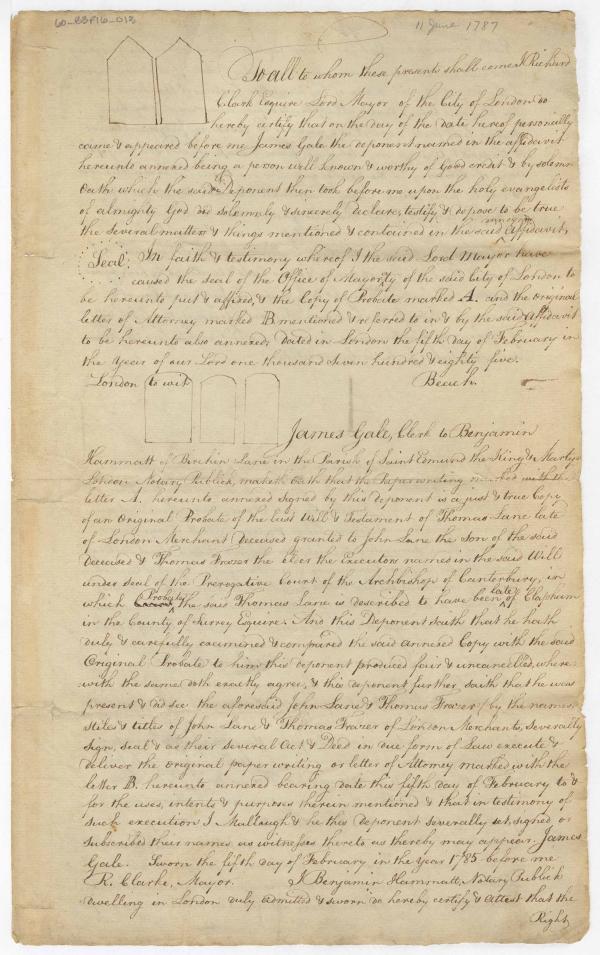 60-B3F16-013
11 June 1787
To all to whom these presents shall come I Richard
Clark Esquire Lord Mayor of the City of London do
hereby certify that on the day of the date hereof personally
came & appeared before me James Gale the deponent named in the affidavit
hereunto annexed being a person well known & worthy of good credit & by solemn
Oath which the said Deponent then took before me upon the holy evangelists
of almighty God did solemnly & sincerely declare, testify & depose to be true
the several matters & things mentioned & contained in the said annexed Affidavit,
Seal. In faith & testimony whereof I the said Lord Mayor have
caused the seal of the Office of Mayoralty of the said City of London to
be hereunto put & affixed, & the Copy of Probate marked A. and the original
letter of Attorney marked B mentioned & referred to in & by the said Affidavit
to be hereunto also annexed, Dated in London the fifth day of February in
the Year of our Lord one thousand seven hundred & eighty five.
London to wit Beach.
James Gale, Clerk to Benjamin
Hammatt of Birchin Lane in the Parish of Saint Edmund the King & Martyr
London Notary Publick, maketh oath that the Paperwriting marked with the
letter A. hereunto annexed signed by this deponent is a just & true Copy
of an Original Probate of the last Will & Testament of Thomas Lane late
of London Merchant deceased granted to John Lane the son of the said
deceased & Thomas Frazer the elder the Executors named in the said Will
under seal of the Prerogative Court of the Archbishop of Canterbury, in
which Probate, the said Thomas Lane is described to have been late of Clapham
in the County of Surrey Esquire. And this Deponent saith that he hath
duly & carefully examined & compared the said annexed Copy with the said
Original Probate to him this deponent produced fair & uncancelled, where
with the same doth exactly agree, & this deponent further saith that he was
present & did see the aforesaid John Lane & Thomas Frazer (by the names,
stiles & titles of John Lane & Thomas Frazer of London Merchants, severally
sign, seal & as their several Act & Deed in due form of Law execute &
deliver the original paper writing or letter of Attorney marked with the
letter B. hereunto annexed bearing date this fifth day of February to &
for the uses, intents & purposes therein mentioned & that in testimony of
such execution J Mullaugh & he this deponent severally set, signed or
subscribed their names as witnesses thereto as thereby may appear. James
Gale. Sworn the fifth day of February in the Year 1785 before me
R. Clarke, Mayor. I Benjamin Hammatt, Notary Publick
dwelling in London duly admitted & sworn do hereby certify & attest that the
Right